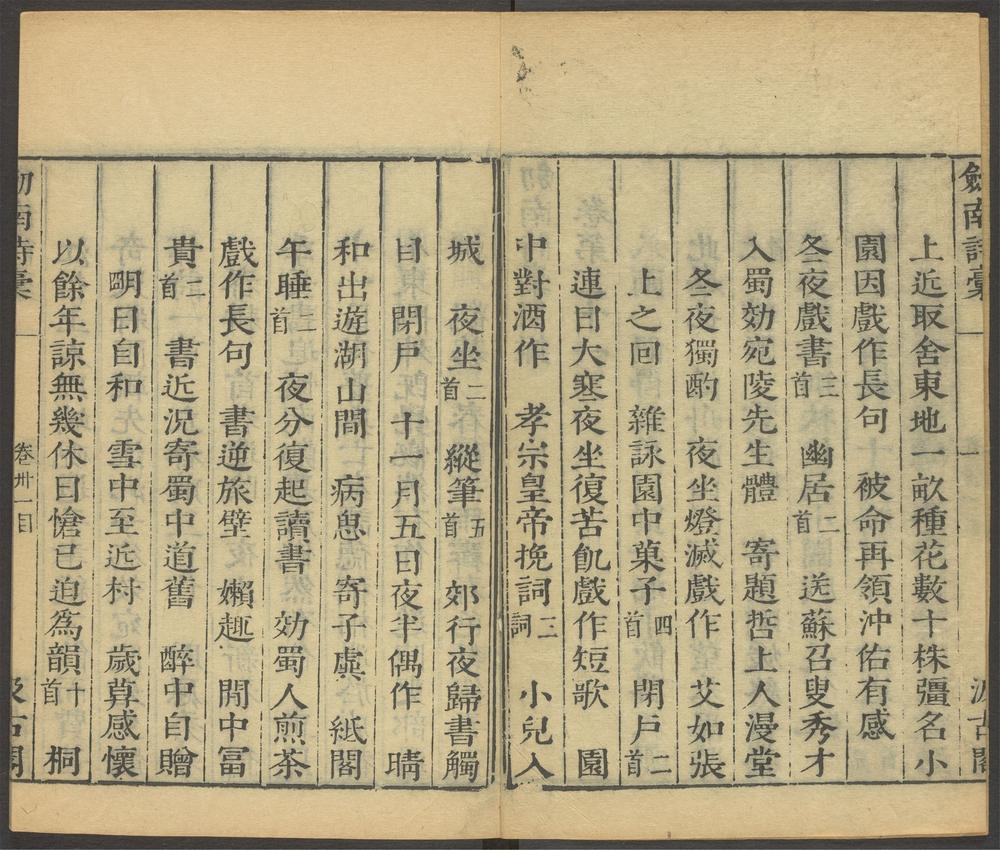 劒南詩稾
汲古閣
上近取舍東地一畝種花數十株彊名小
園因戲作長句　被命再領沖佑有感
冬夜戲書三首　幽居二首　送蘇召叟秀才
入蜀効宛陵先生體　寄題哲上人漫堂
冬夜獨酌　夜坐燈滅戲作　艾如張
上之回　雜詠園中菓子四首　閉戸二首
連日大寒夜坐復苦飢戲作短歌　園
中對酒作　孝宗皇帝挽詞三詞　小兒入
城　夜坐二首　縱筆五首　郊行夜歸書觸
目　閉戸　十一月五日夜半偶作　晴
和出遊湖山間　病思　寄子虡　紙閣
午睡二首　夜分復起讀書　効蜀人煎茶
戲作長句　書逆旅壁　嬾趣　閒中冨
貴二首　書近況寄蜀中道舊　醉中自贈
明日自和　雪中至近村　歲莫感懷
以餘年諒無幾休日愴已迫爲韻十首　桐
劒南詩稾　卷卅一目　汲古閣